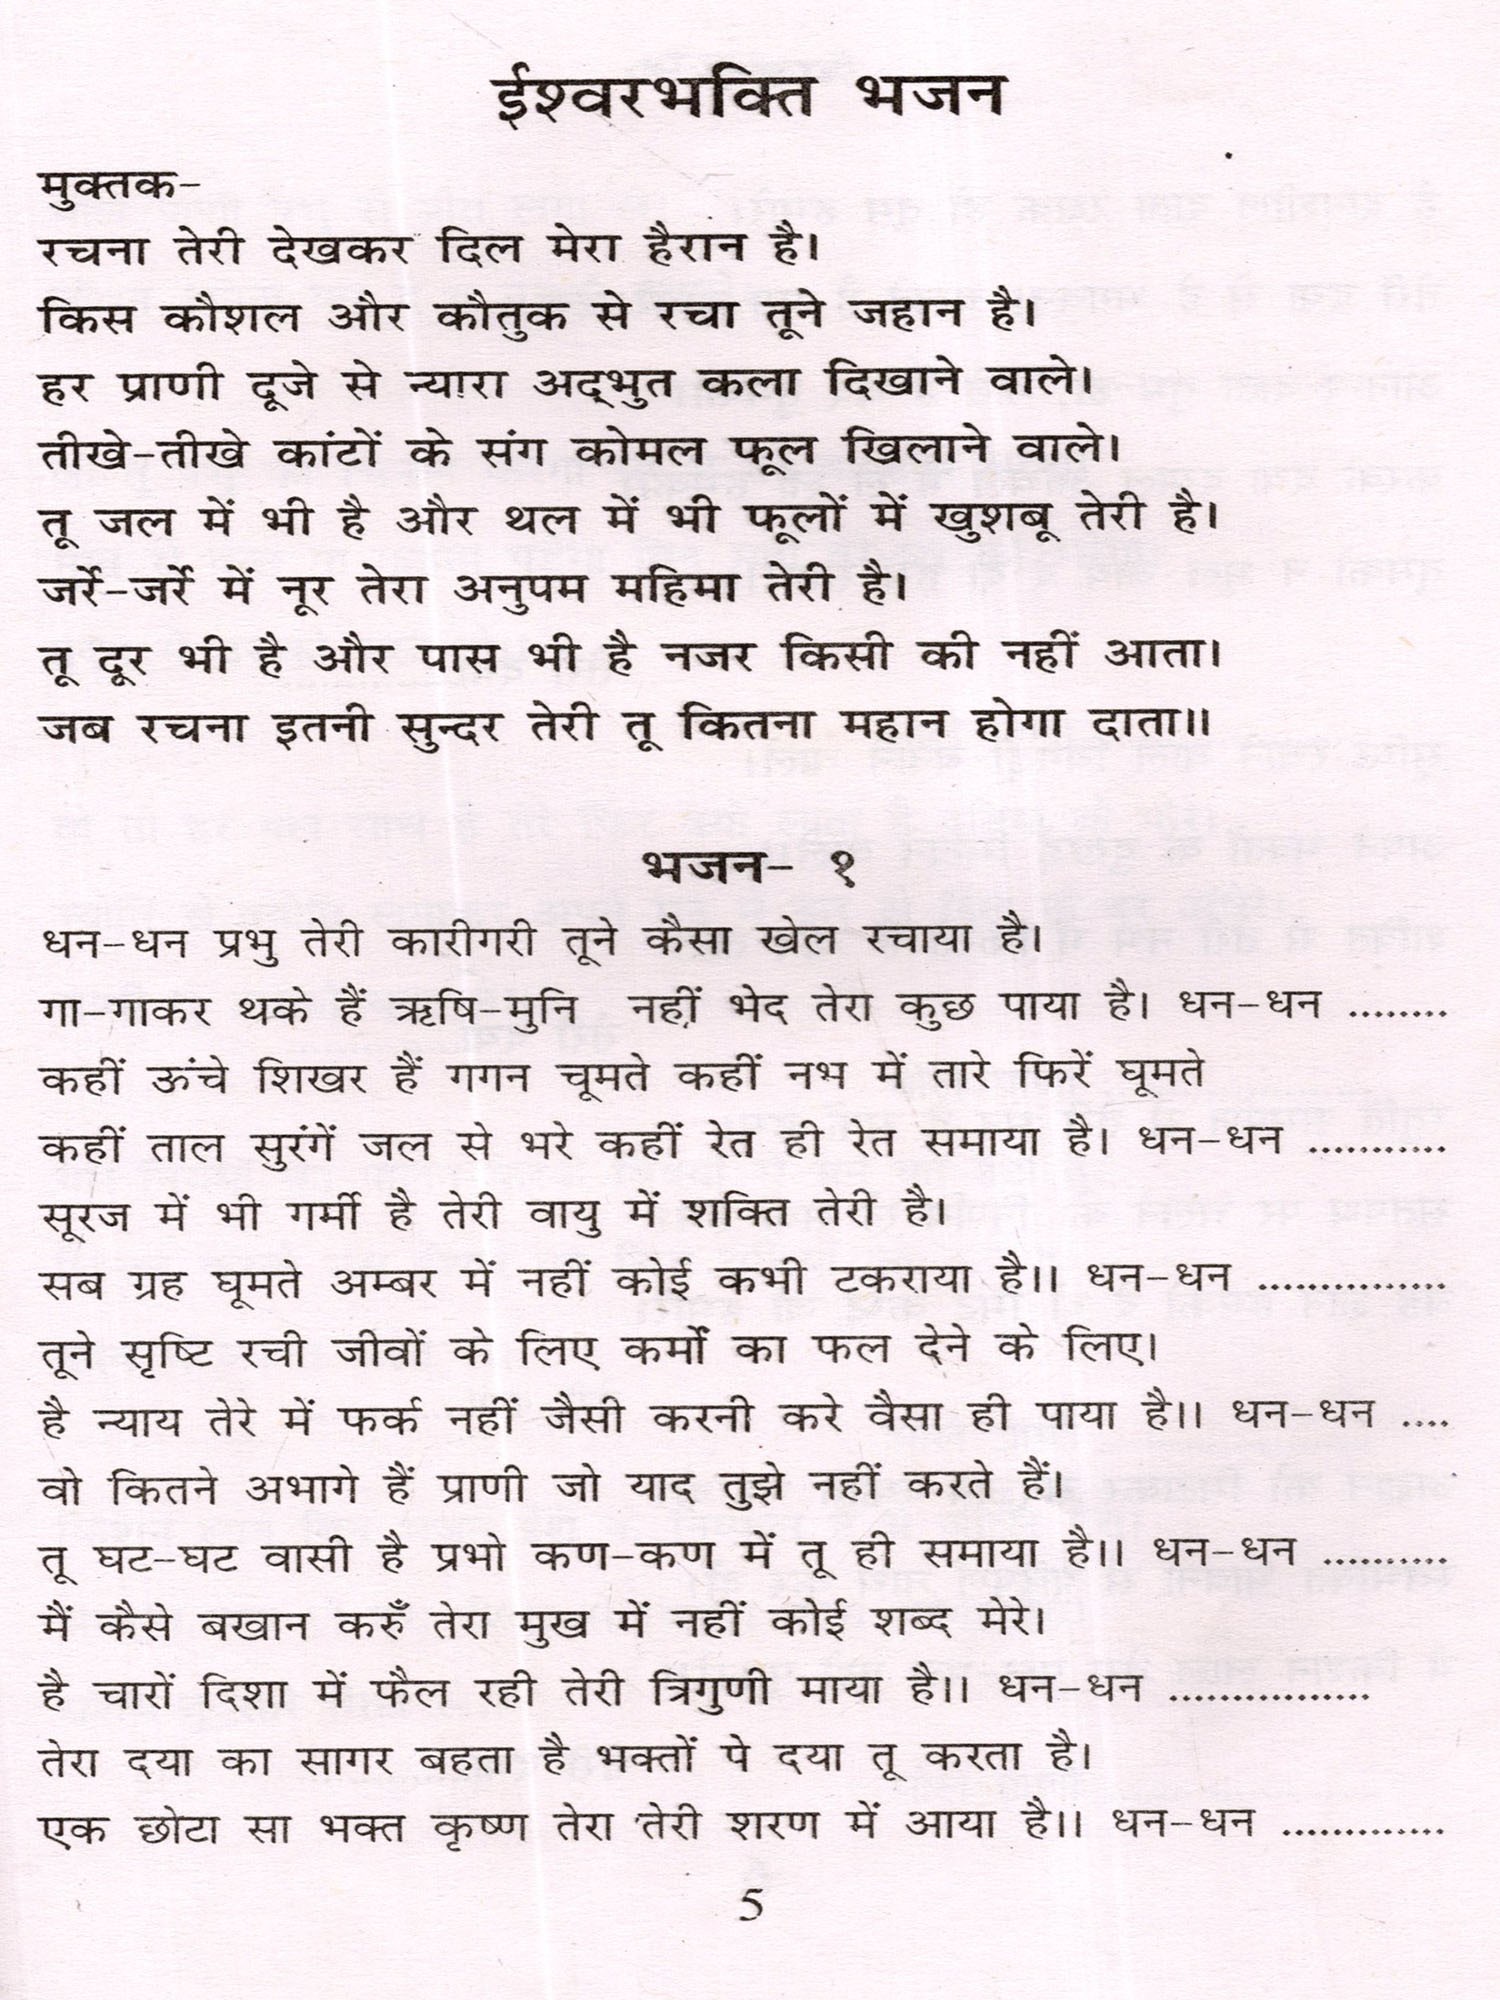 ईश्वरभक्ति भजन
मुक्तक-
रचना तेरी देखकर दिल मेरा हैरान है।
किस कौशल और कौतुक से रचा तूने जहान है।
हर प्राणी दूजे से न्यारा अद्‌भुत कला दिखाने वाले।
तीखे-तीखे कांटों के संग कोमल फूल खिलाने वाले।
तू जल में भी है और थल में भी फूलों में खुशबू तेरी है।
जर्रे-जर्रे में नूर तेरा अनुपम महिमा तेरी है।
तू दूर भी है और पास भी है नजर किसी की नहीं आता।
जब रचना इतनी सुन्दर तेरी तू कितना महान होगा दाता॥
भजन- १
धन-धन प्रभु तेरी कारीगरी तूने कैसा खेल रचाया है।
गा-गाकर थके हैं ऋषि-मुनि नहीं भेद तेरा कुछ पाया है। धन-धन ........
कहीं ऊंचे शिखर हैं गगन चूमते कहीं नभ में तारे फिरें घूमते
कहीं ताल सुरंगें जल से भरे कहीं रेत ही रेत समाया है। धन-धन ...........
सूरज में भी गर्मी है तेरी वायु में शक्ति तेरी है।
सब ग्रह घूमते अम्बर में नहीं कोई कभी टकराया है॥ धन-धन ...............
तूने सृष्टि रची जीवों के लिए कर्मों का फल देने के लिए।
है न्याय तेरे में फर्क नहीं जैसी करनी करे वैसा ही पाया है॥ धन-धन ....
वो कितने अभागे हैं प्राणी जो याद तुझे नहीं करते हैं।
तू घट-घट वासी है प्रभो कण-कण में तू ही समाया है॥ धन-धन ..........
मैं कैसे बखान करुँ तेरा मुख में नहीं कोई शब्द मेरे।
है चारों दिशा में फैल रही तेरी त्रिगुणी माया है॥ धन-धन ................
तेरा दया का सागर बहता है भक्तों पे दया तू करता है।
एक छोटा सा भक्त कृष्ण तेरा तेरी शरण में आया है॥ धन-धन .............
5